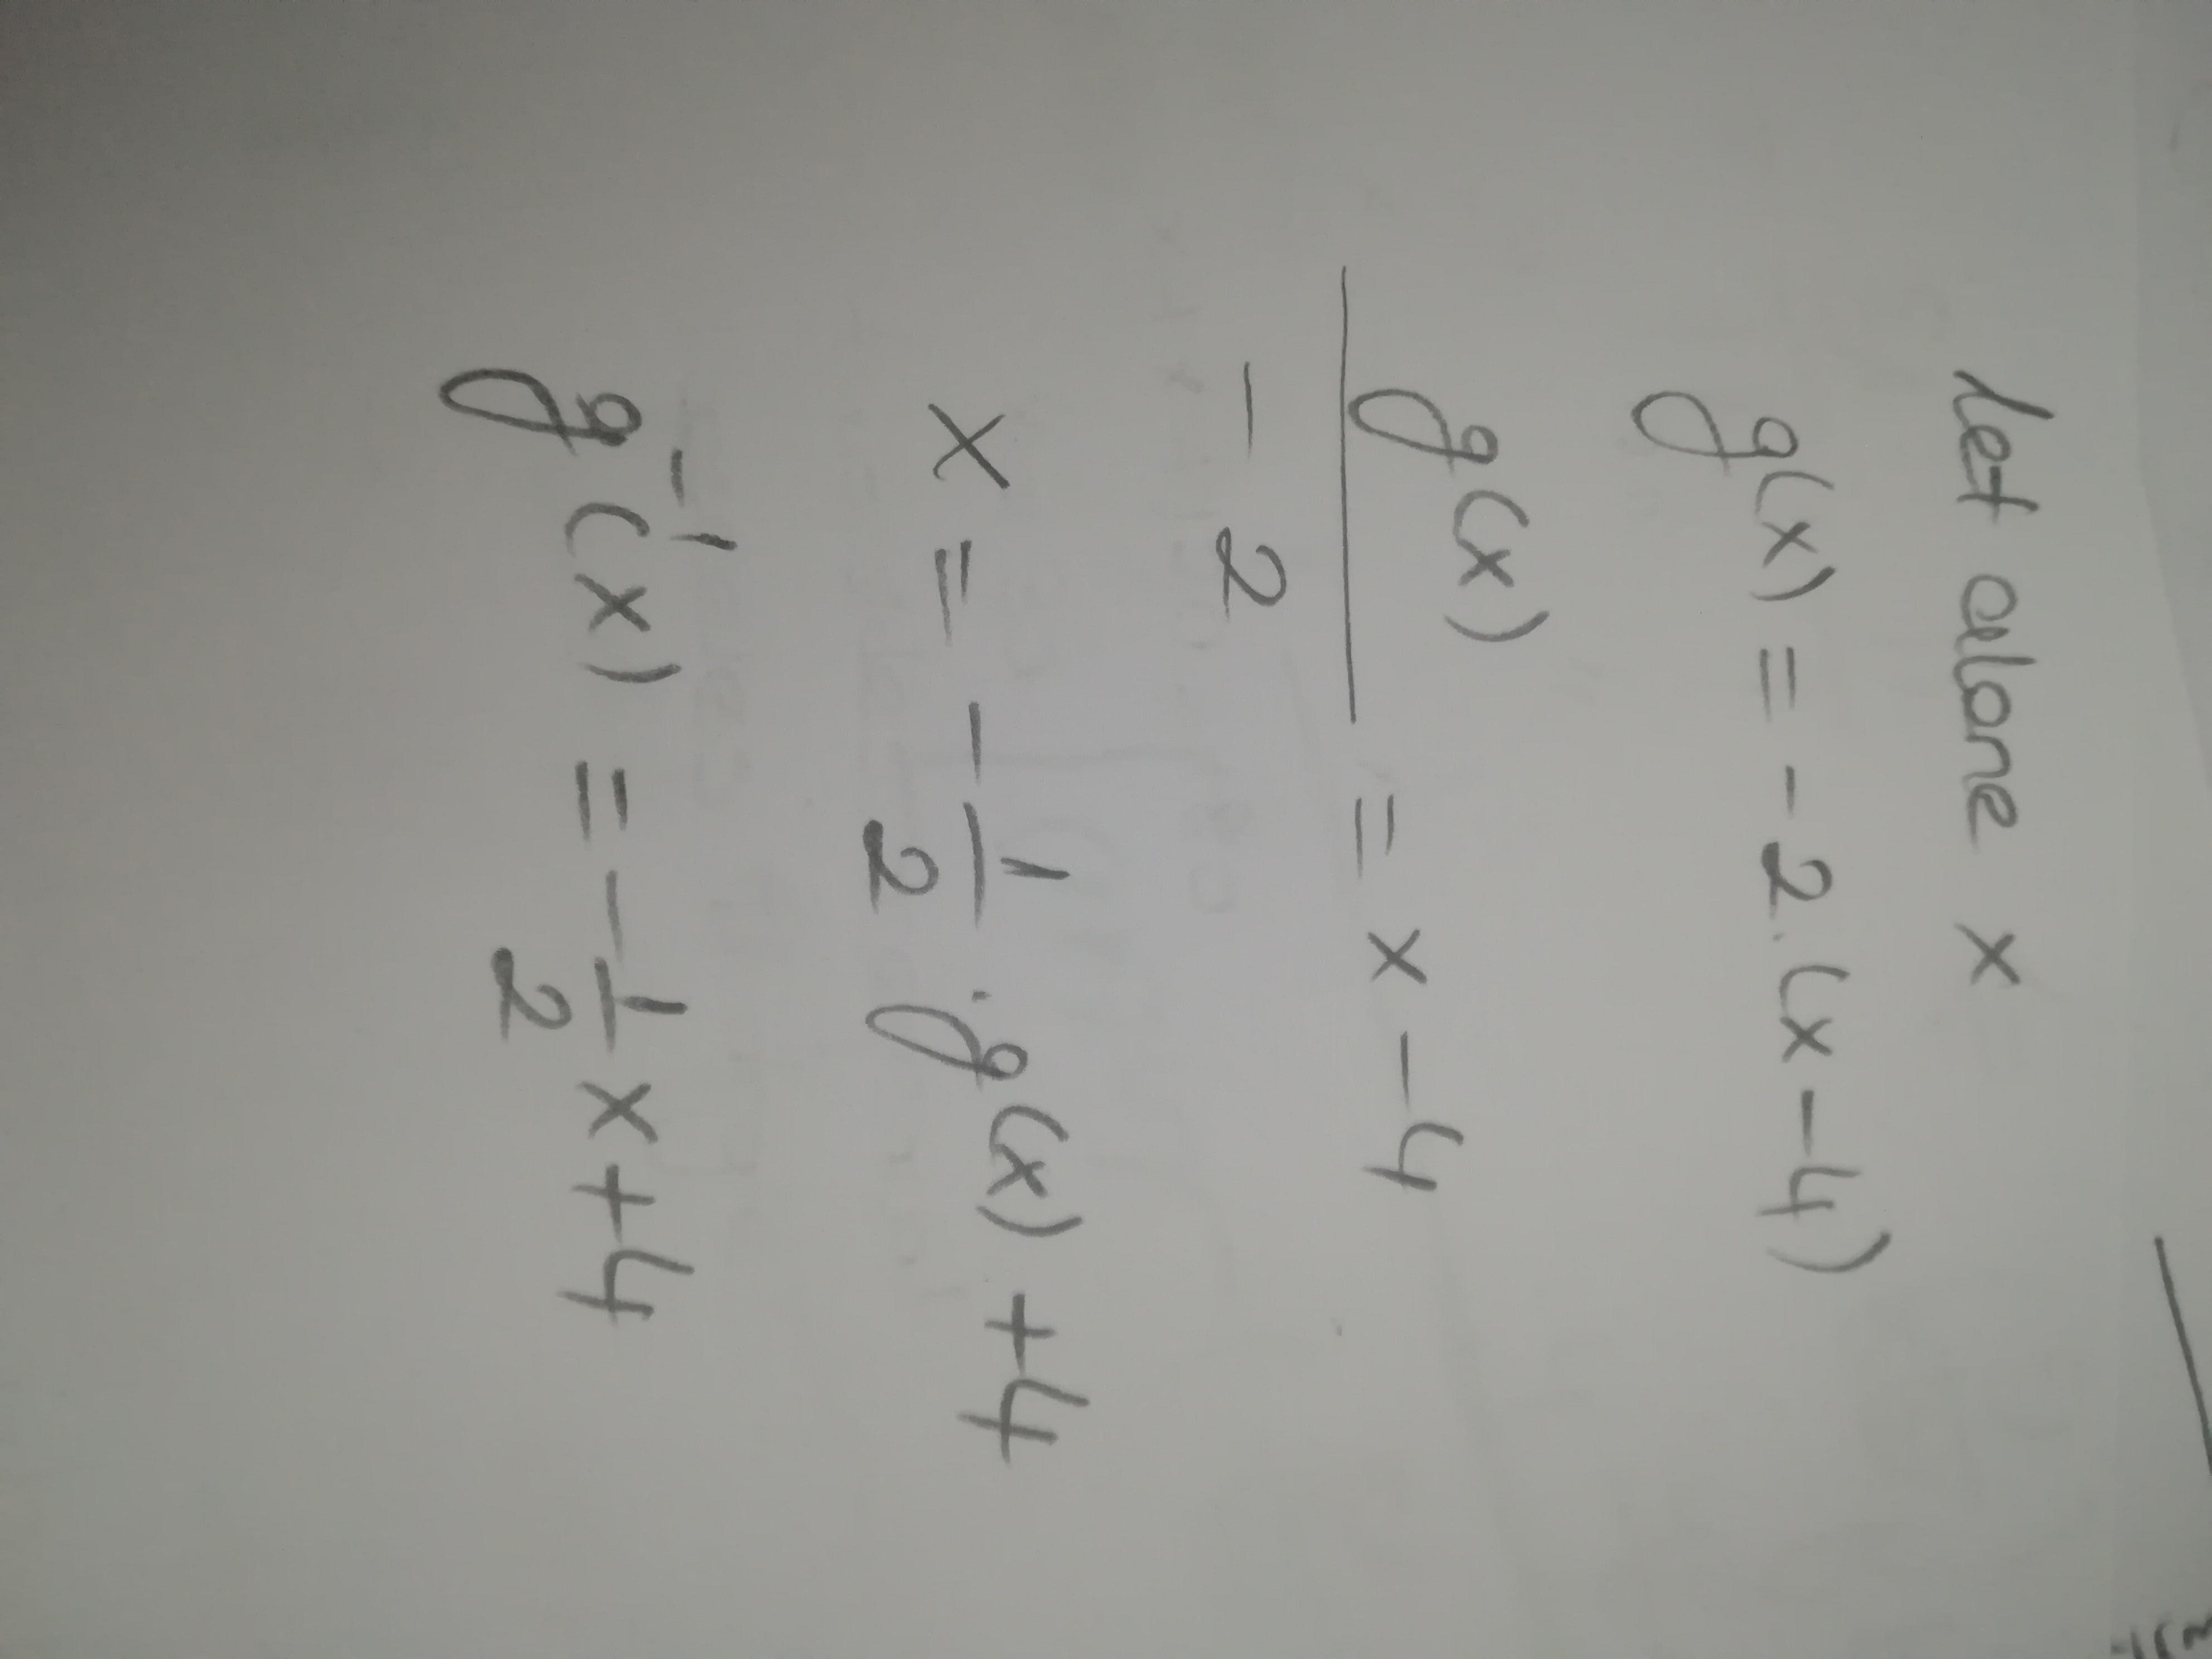 let alone x
g(x) = -2.(x-4)
g(x)/-2 = x-4
x = -1/2.g(x)+4
g⁻¹(x) = -1/2x+4